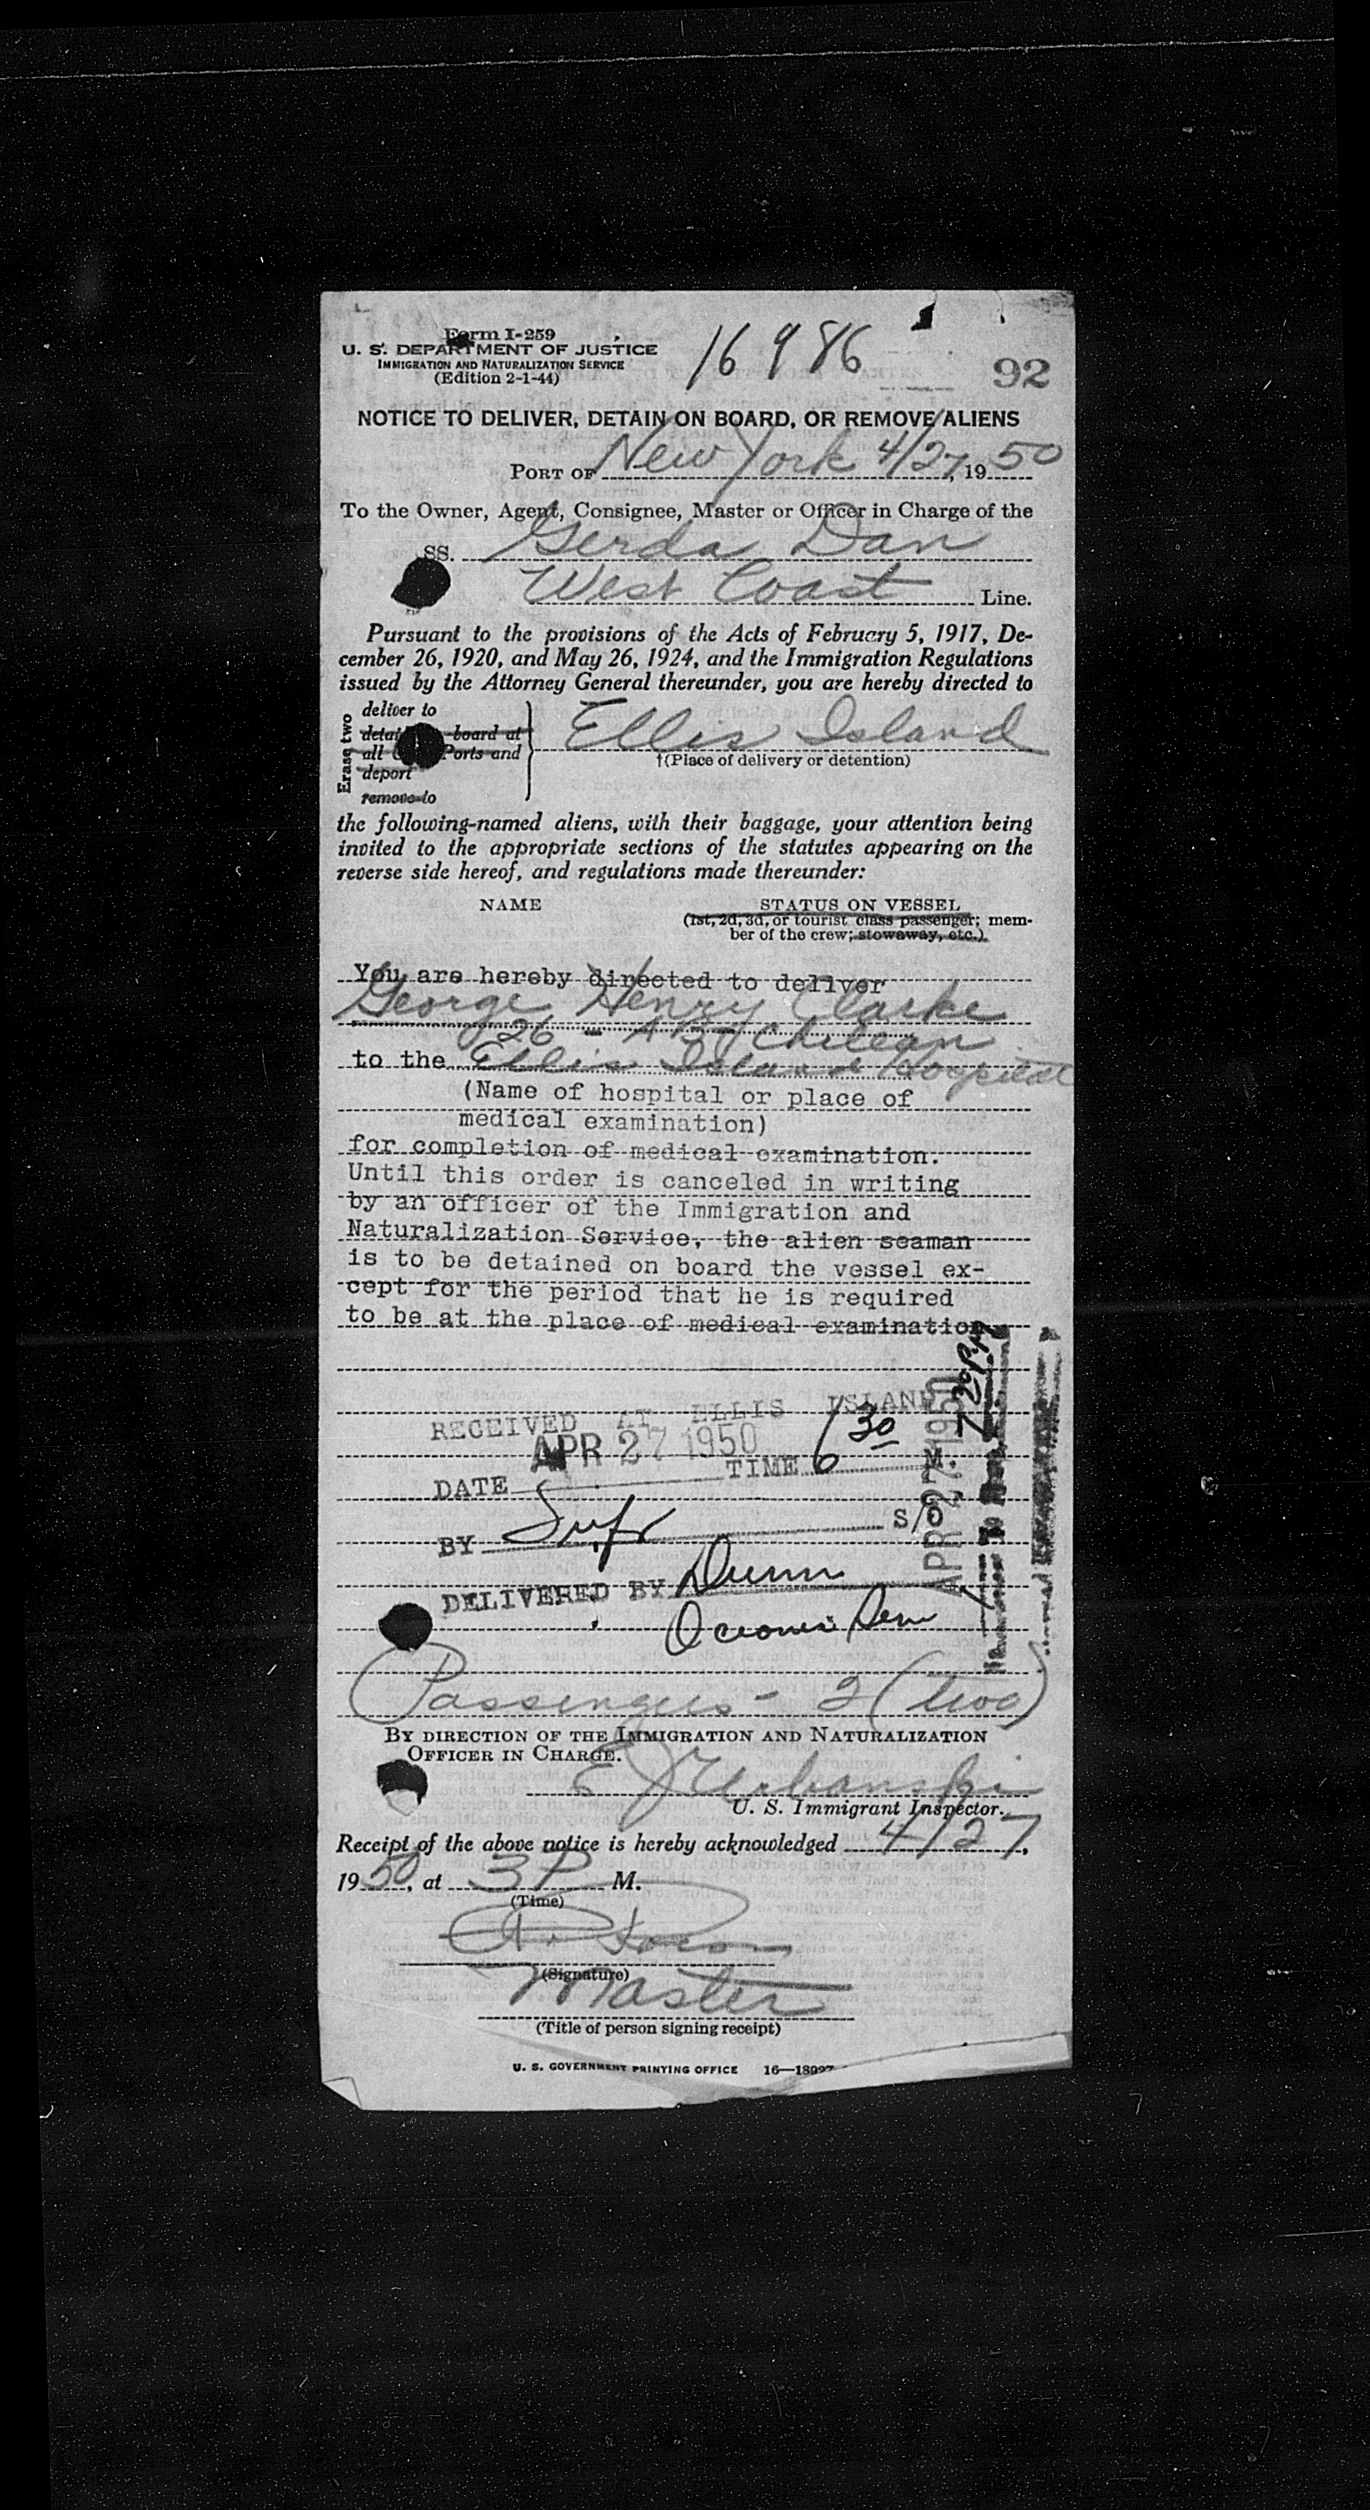 Form I-259
U. S. DEPARTMENT OF JUSTICE
IMMIGRATION AND NATURALIZATION SERVICE
(Edition 2-1-44)
16986
92
NOTICE TO DELIVER, DETAIN ON BOARD, OR REMOVE ALIENS
PORT OF New York 4/27, 19 50
To the Owner, Agent, Consignee, Master or Officer in Charge of the
SS. Gerda Dan
West Coast Line.
Pursuant to the provisions of the Acts of February 5, 1917, De-
cember 26, 1920, and May 26, 1924, and the Immigration Regulations
issued by the Attorney General thereunder, you are hereby directed to
Erase two
deliver to
board at
all Ports and
deport
remove to
Ellis Island
†(Place of delivery or detention)
the following-named aliens, with their baggage, your attention being
invited to the appropriate sections of the statutes appearing on the
reverse side hereof, and regulations made thereunder:
NAME STATUS ON VESSEL
(1st, 2d, 3d, or tourist class passenger; mem-
ber of the crew; stowaway, etc.)
You are hereby directed to deliver
George Henry Clarke
26 - AB - Chilean
to the Ellis Island Hospital
(Name of hospital or place of
medical examination)
for completion of medical examination.
Until this order is canceled in writing
by an officer of the Immigration and
Naturalization Service, the alien seaman
is to be detained on board the vessel ex-
cept for the period that he is required
to be at the place of medical examination
RECEIVED AT ELLIS ISLAND
APR 27 1950
DATE TIME 6 30 M
BY S/O
DELIVERED BY Dunn
APR 27 1950
7 30 PM
(Passengers - 2 (two)
BY DIRECTION OF THE IMMIGRATION AND NATURALIZATION
OFFICER IN CHARGE.
E J Urbanski
U. S. Immigrant Inspector.
Receipt of the above notice is hereby acknowledged 4/27,
19 50, at 3 P M.
(Time)
(Signature)
Master
(Title of person signing receipt)
U. S. GOVERNMENT PRINTING OFFICE 16—18027